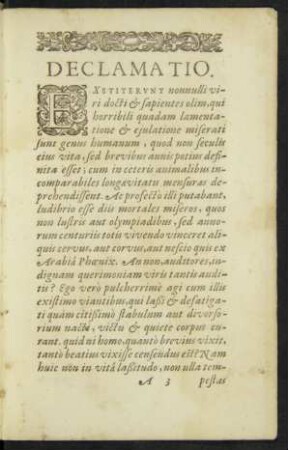 DECLAMATIO.
EXSTITERVNT nonnulli vi-
ri docti & sapientes olim, qui
horribili quadam lamenta-
tione & ejulatione miserati
sunt genus humanum, quod non seculis
eius vita, sed brevibus annis potius defi-
nita esset; cum in ceteris animalibus in-
comparabiles longævitatis mensuras de-
prehendissent. Ac profectò illi putabant,
ludibrio esse diis mortales miseros, quos
non lustris aut olympiadibus, sed anno-
rum centuriis totis vivendo vinceret ali-
quis cervus, aut corvus, aut nescio quis ex
Arabiâ Phœnix. An non auditores, in-
dignam querimoniam viris tantis audi-
tis? Ego verò pulcherrimè agi cum illis
existimo viantibus, qui lassi & defatiga-
ti quàm citissimò stabulum aut diverso-
rium nacti, victu & quiete corpus cu-
rant. quid ni homo, quantò brevius vixit,
tantò beatius vixisse censendus est? Nam
huic non in vitâ lassitudo, non ulla tem-
A 3 pestas